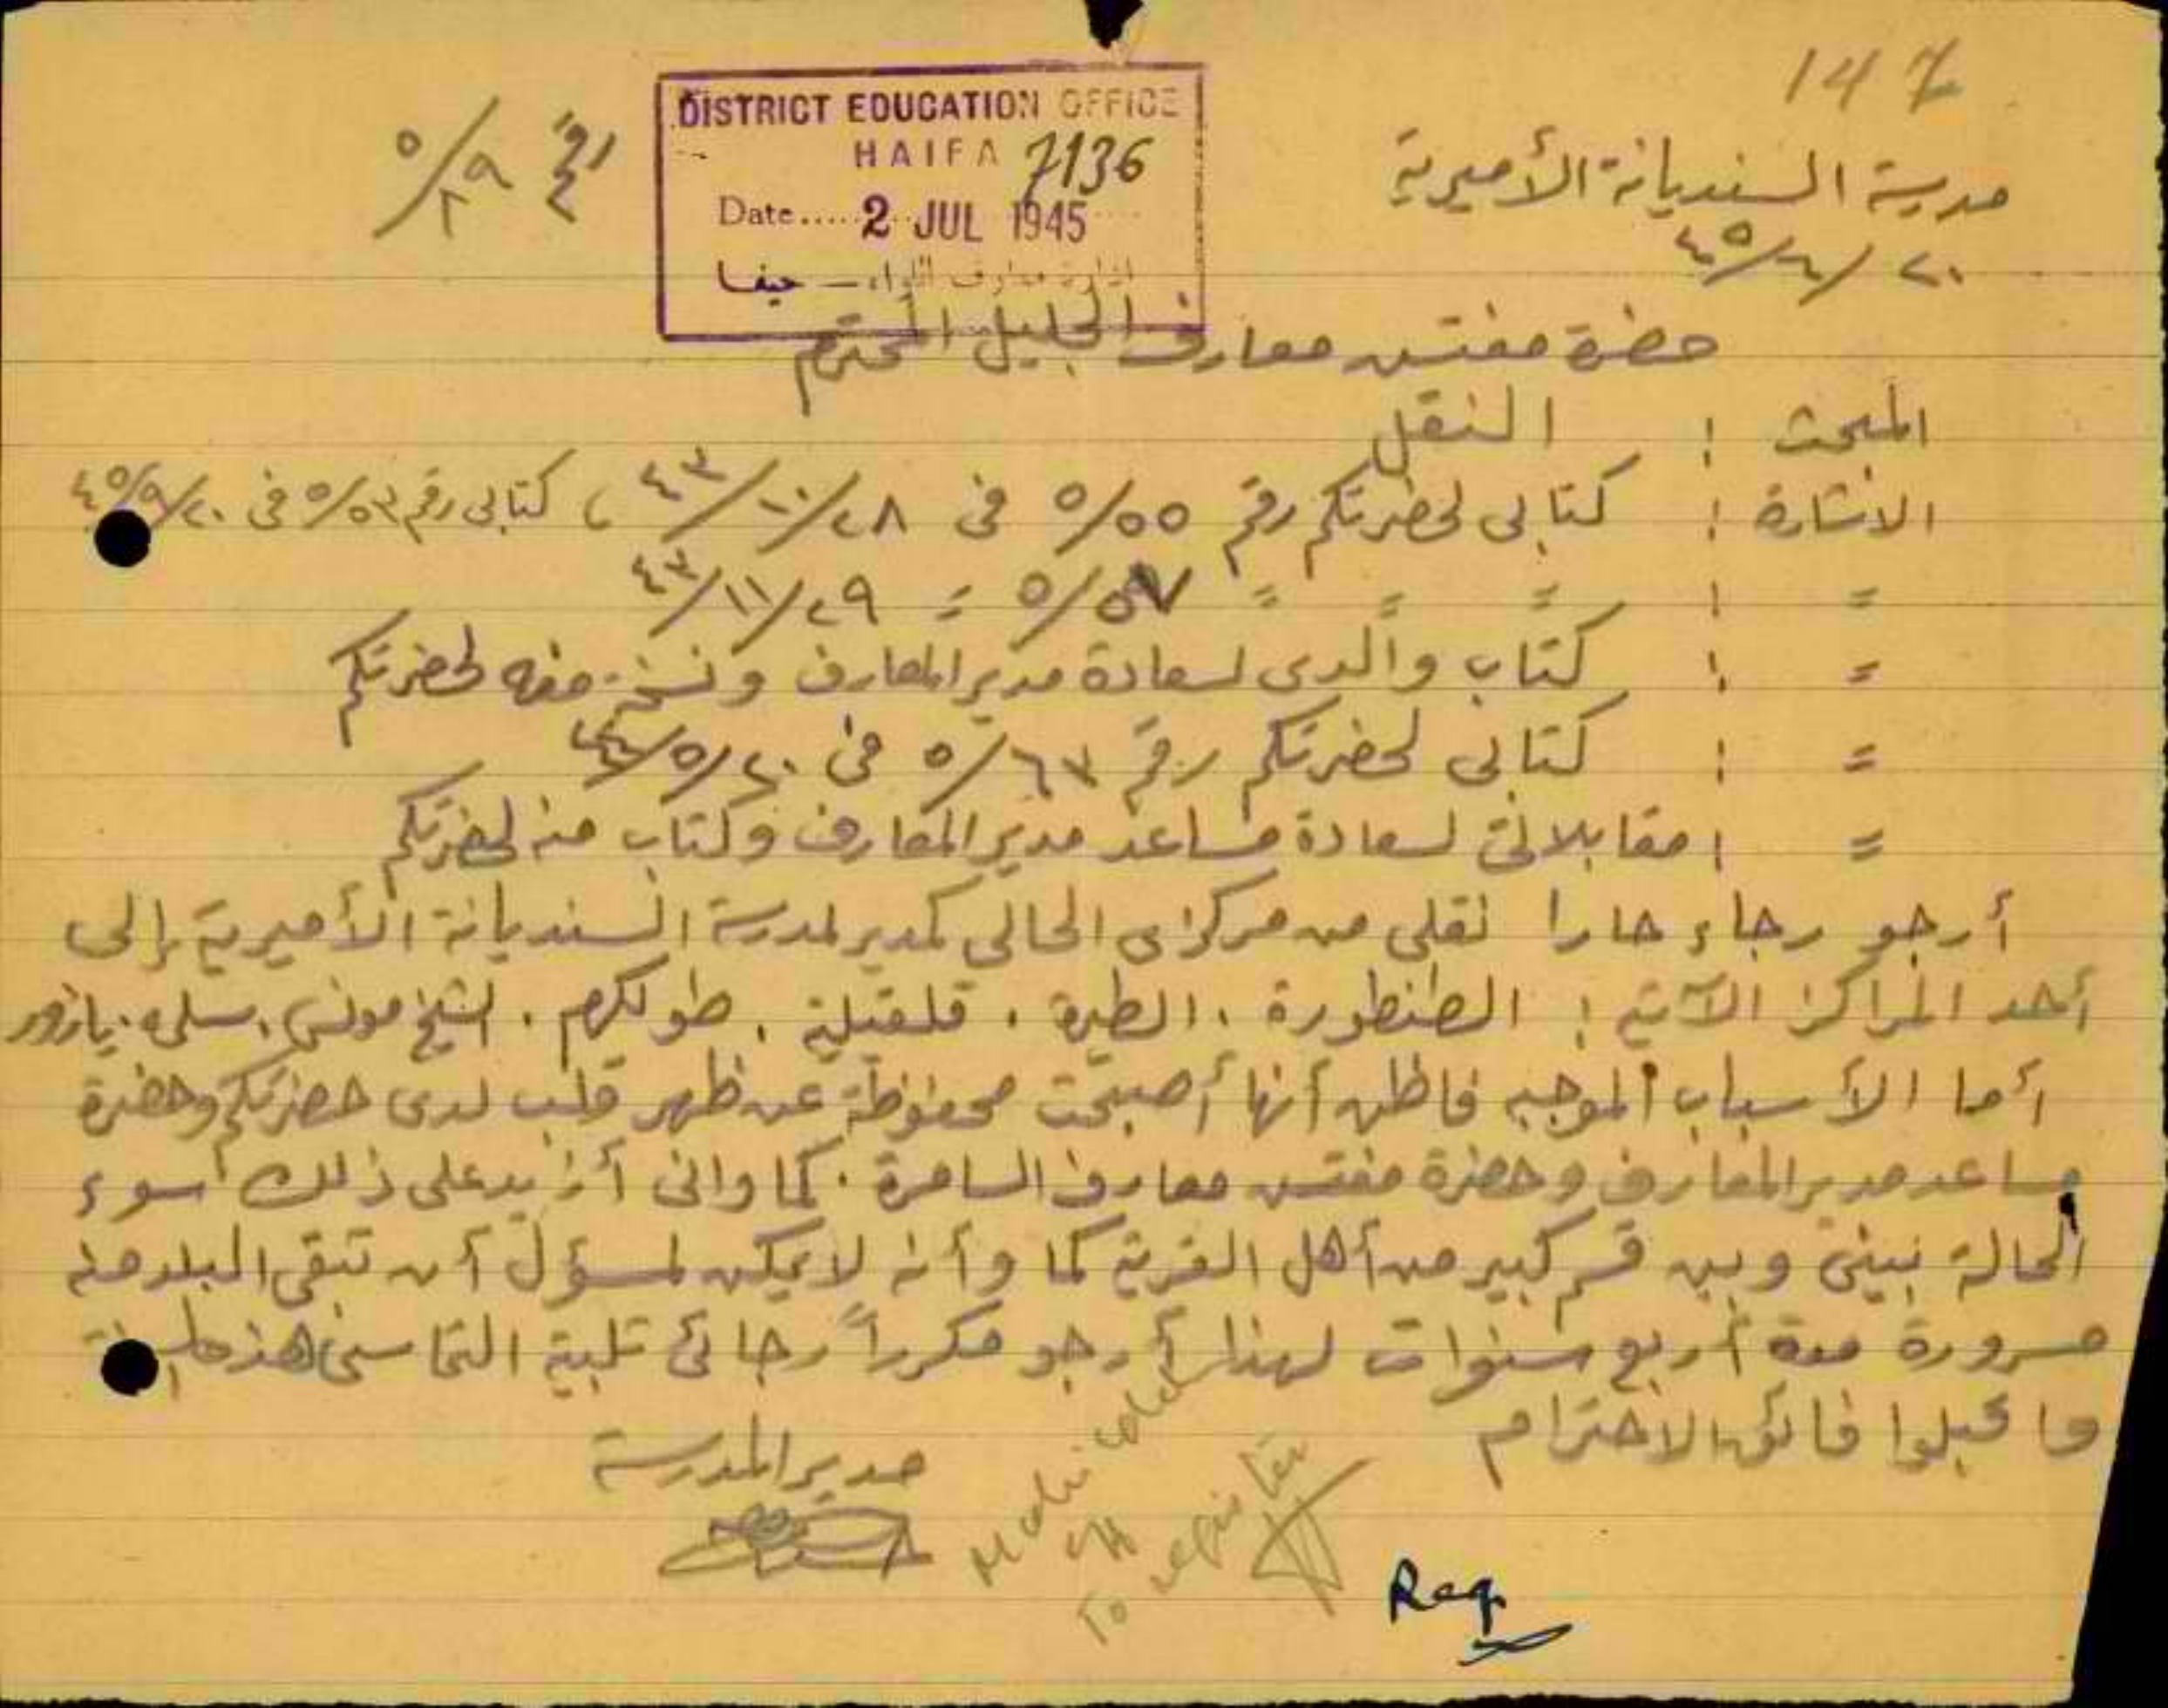 147
مدرسة السنديانة الأميرية
٢٠/٦/٤٥
رقم ٥/٢٩
DISTRICT EDUCATION OFFICE
HAIFA 7136
Date..... 2 JUL 1945
ادارة معارف اللواء - حيفا
حضرة مفتش معارف الجليل المحترم
المبحث : النقل
الاشارة : كتابي لحضرتكم رقم ٥/٥٥ في ٢٨/١٠/٤٣ ، كتابي رقم ٥/٥٣ في
= : = = = ٥/٥٧ = ٢٩/١١/٤٣
= : كتاب والدي لسعادة مدير المعارف ونسخة منه لحضرتكم
= : كتابي لحضرتكم رقم ٥/٦٣ في
= : مقابلاتي لسعادة مساعد مدير المعارف وكتاب منه لحضرتكم
أرجو رجاء حارا نقلي من مركزي الحالي كمدير لمدرسة السنديانة الأميرية إلى
أحد المراكز الآتية : الطنطورة . الطيرة . قلقيلية . طولكرم . الشيخ مونس . سلمه . يازور
أما الأسباب الموجبه فاظن أنها أصبحت محفوظة عن ظهر قلب لدى حضرتكم وحضرة
مساعد مدير المعارف وحضرة مفتش معارف السامرة . كما واني أزيد على ذلك سوء
الحالة بيني وبين قسم كبير من أهل القرية كما وأنه لا يمكن لمسؤل أن تبقى البلد منه
مسرورة مدة أربع سنوات لهذا أرجو مكرراً رجائي تلبية التماسي هذه
واقبلوا فائق الاحترام
مدير المدرسة
To register
Reg.